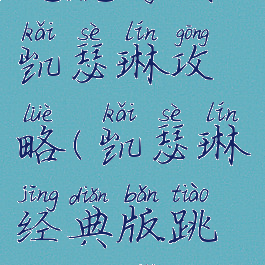 kǎi sè lín gōng
凯瑟琳攻
lüè kǎi sè lín
略(凯瑟琳
jīng diǎn bǎn tiào
经典版跳